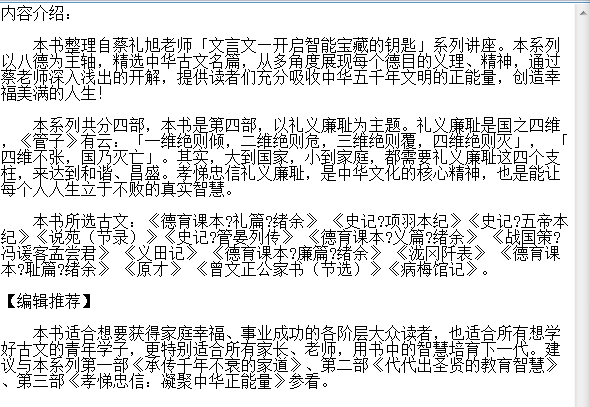 内容介绍:
本书整理自蔡礼旭老师「文言文—开启智能宝藏的钥匙」系列讲座。本系列
以八德为主轴，精选中华古文名篇，从多角度展现每个德目的义理、精神，通过
蔡老师深入浅出的开解，提供读者们充分吸收中华五千年文明的正能量，创造幸
福美满的人生!
本系列共分四部，本书是第四部，以礼义廉耻为主题。礼义廉耻是国之四维
，《管子》有云：「一维绝则倾，二维绝则危，三维绝则覆，四维绝则灭」，「
四维不张，国乃灭亡」。其实，大到国家，小到家庭，都需要礼义廉耻这四个支
柱，来达到和谐、昌盛。孝悌忠信礼义廉耻，是中华文化的核心精神，也是能让
每个人人生立于不败的真实智慧。
本书所选古文：《德育课本?礼篇?绪余》《史记?项羽本纪》《史记?五帝本
纪》《说苑（节录）》《史记?管晏列传》《德育课本?义篇?绪余》《战国策?
冯谖客孟尝君》《义田记》《德育课本?廉篇?绪余》《泷冈阡表》《德育课
本?耻篇?绪余》《原才》《曾文正公家书（节选）》《病梅馆记》。
【编辑推荐】
本书适合想要获得家庭幸福、事业成功的各阶层大众读者，也适合所有想学
好古文的青年学子，更特别适合所有家长、老师，用书中的智慧培育下一代。建
议与本系列第一部《承传千年不衰的家道》、第二部《代代出圣贤的教育智慧》
、第三部《孝悌忠信：凝聚中华正能量》参看。